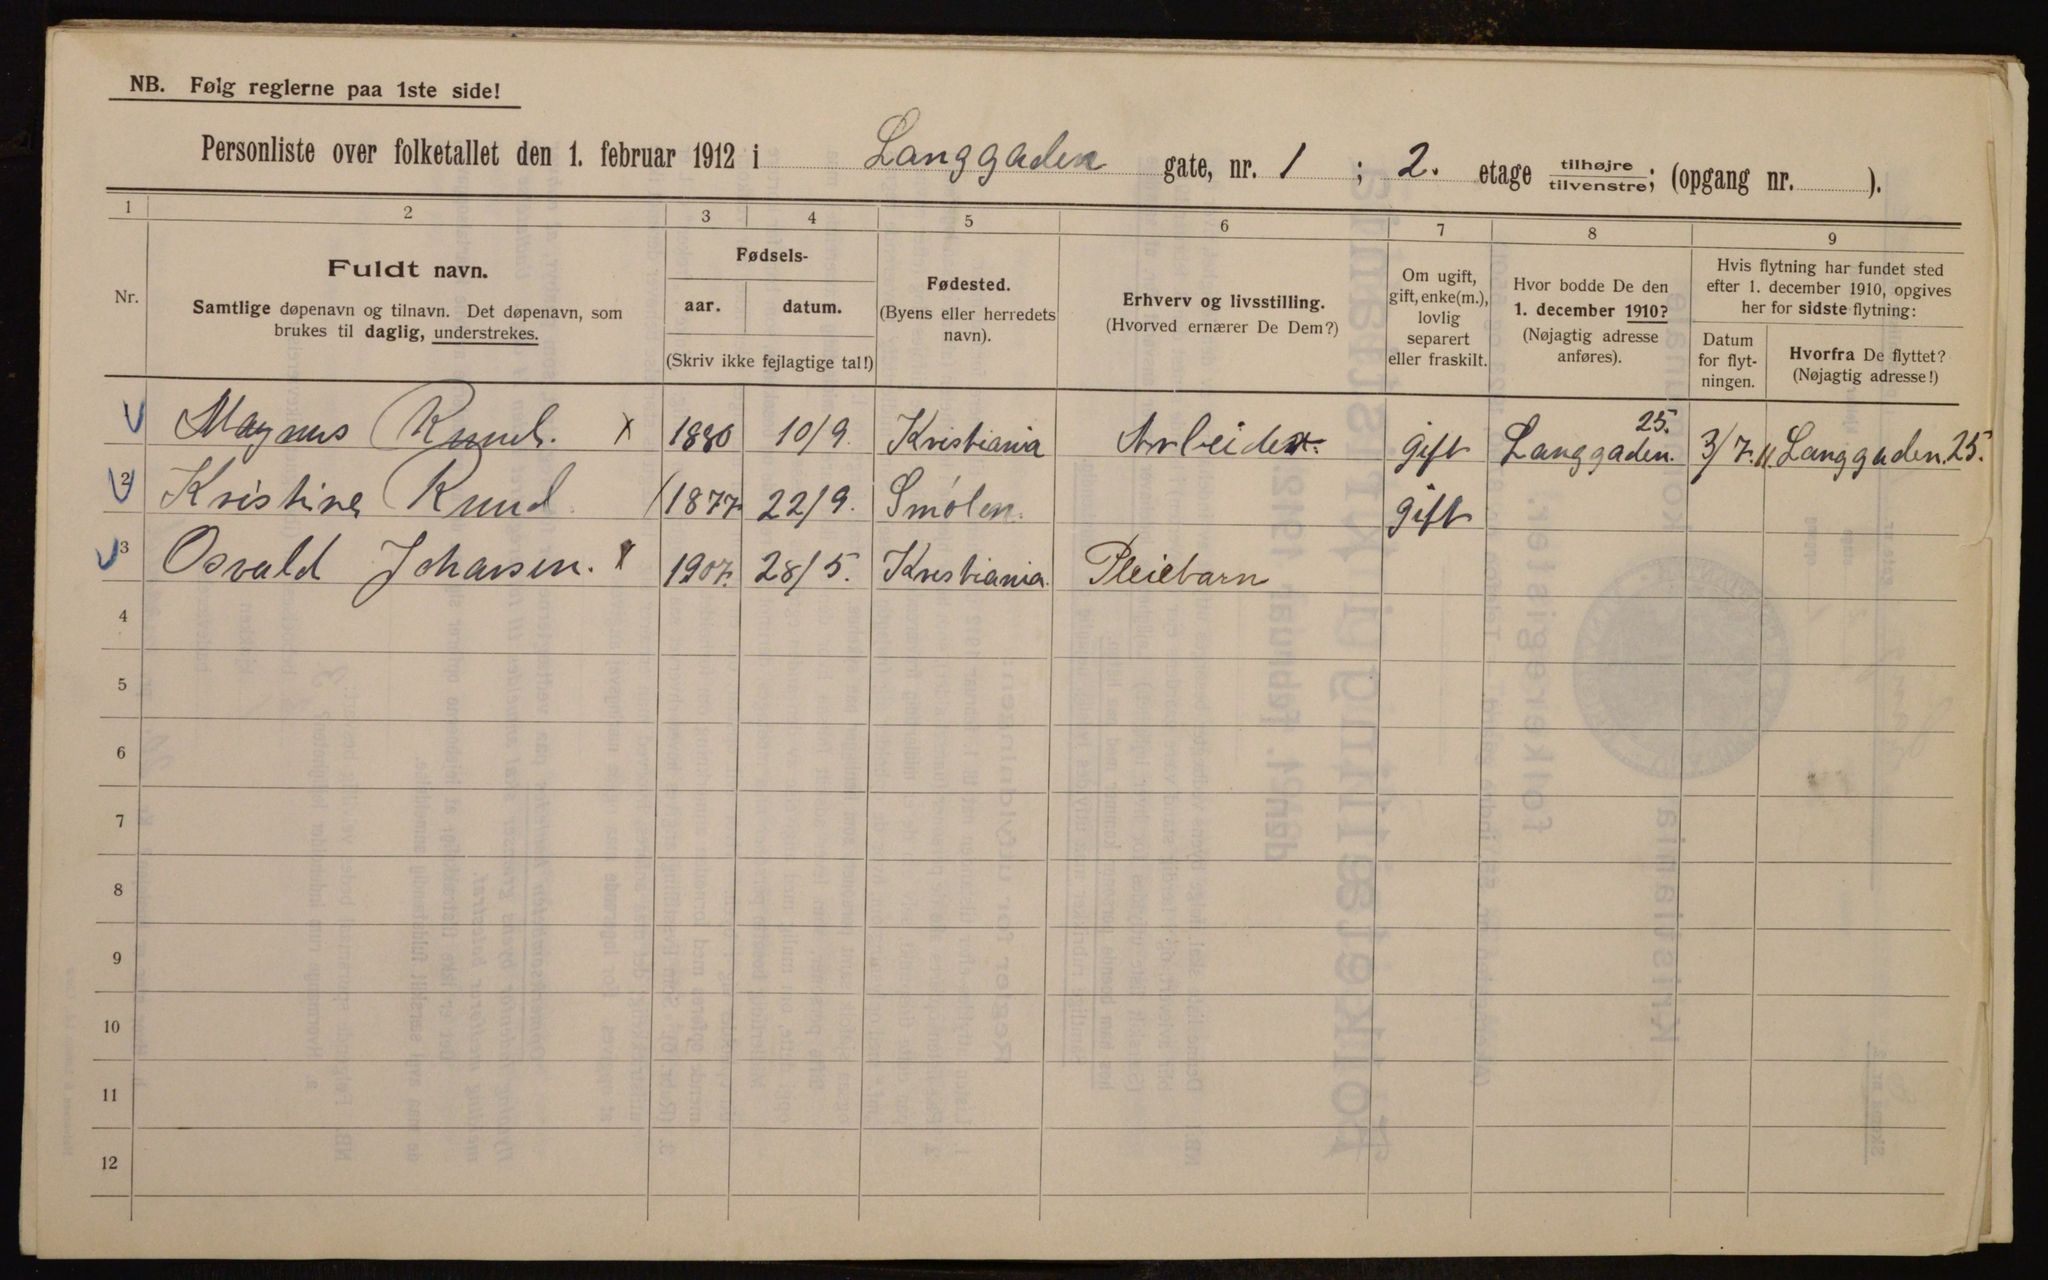 NB. Følg reglerne paa 1ste side!
Personliste over folketallet den 1. februar 1912 i Langgaden gate, nr. 1 ; 2. etage tilhøjre tilvenstre; (opgang nr. ).
1 2 3 4 5 6 7 8 9
Nr.
Fuldt navn.
Samtlige døpenavn og tilnavn. Det døpenavn, som
brukes til daglig, understrekes.
Fødsels-
aar. datum.
(Skriv ikke fejlagtige tal!)
Fødested.
(Byens eller herredets
navn).
Erhverv og livsstilling.
(Hvorved ernærer De Dem?)
Om ugift,
gift, enke(m.),
lovlig
separert
eller fraskilt.
Hvor bodde De den
1. december 1910?
(Nøjagtig adresse
anføres).
Hvis flytning har fundet sted
efter 1. december 1910, opgives
her for sidste flytning:
Datum
for flyt-
ningen.
Hvorfra De flyttet?
(Nøjagtig adresse!)
Magnus Ruud. x 1880 10/9. Kristiania Arbeider. gift Langgaden 25. 3/7. 11. Langgaden 25.
2 Kristine Ruud 1877 22/9. Smølen. gift
3 Osvald Johansen. x 1907. 28/5. Kristiania. Pleiebarn
4
5
6
7
8
9
10
11
12